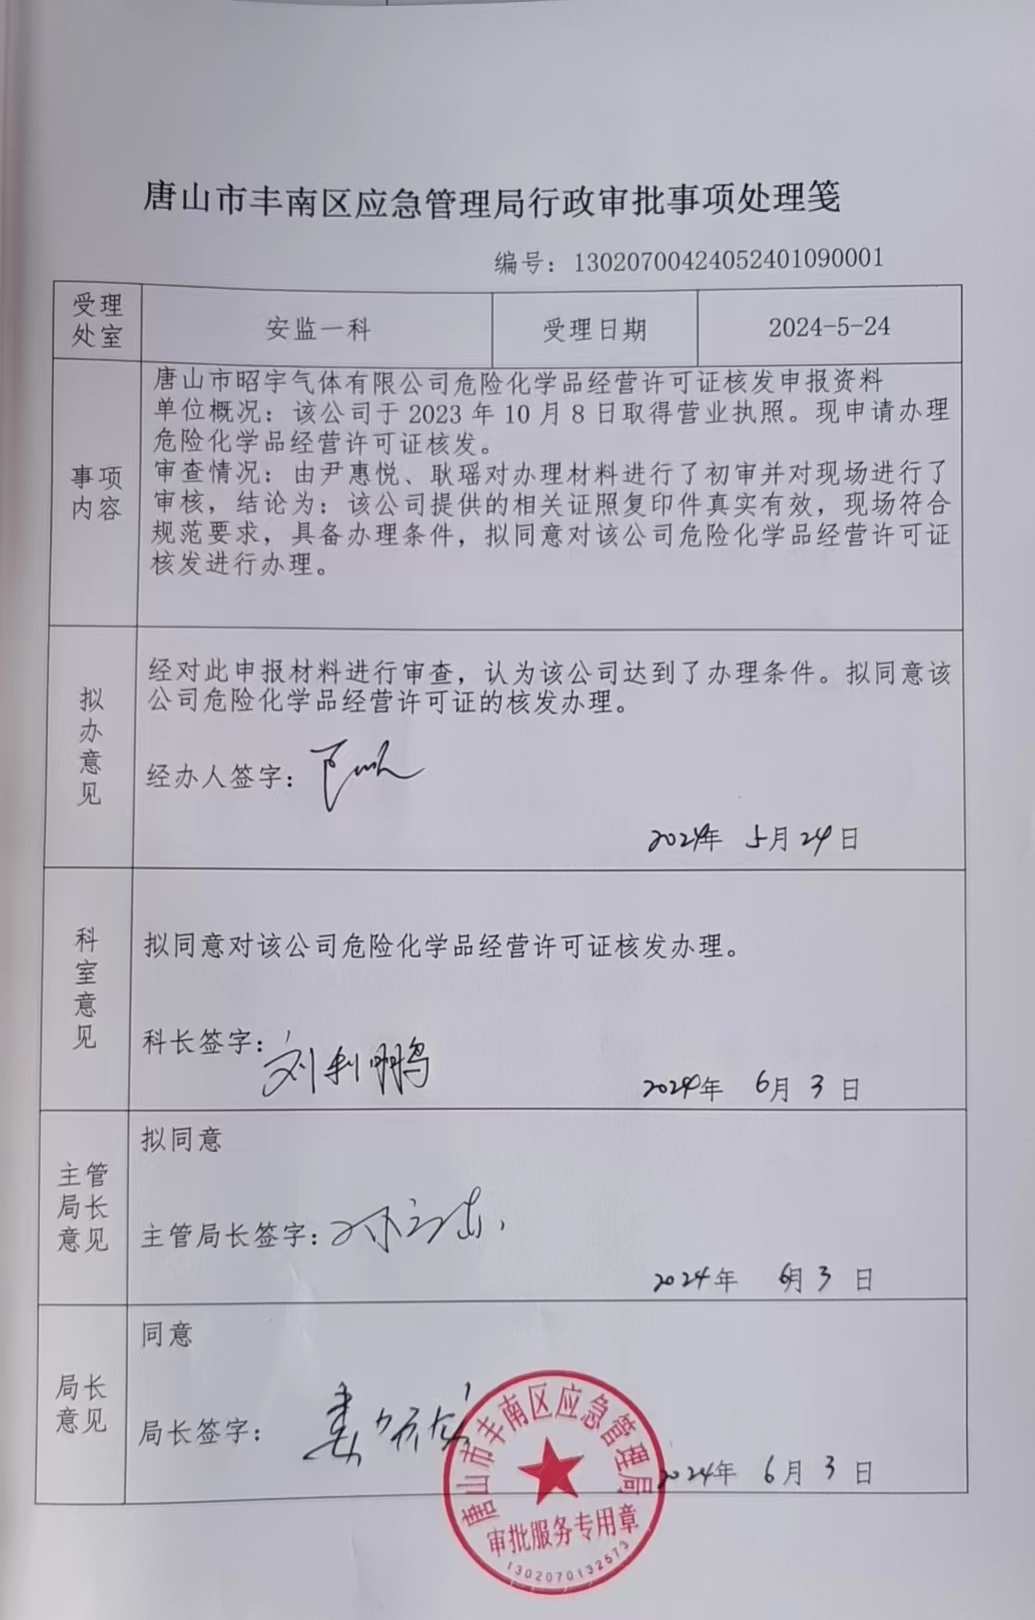 唐山市丰南区应急管理局行政审批事项处理笺
编号：13020700424052401090001
受理
处室
安监一科
受理日期
2024-5-24
事项
内容
唐山市昭宇气体有限公司危险化学品经营许可证核发申报资料
单位概况：该公司于 2023 年 10 月 8 日取得营业执照。现申请办理
危险化学品经营许可证核发。
审查情况：由尹惠悦、耿瑶对办理材料进行了初审并对现场进行了
审核，结论为：该公司提供的相关证照复印件真实有效，现场符合
规范要求，具备办理条件，拟同意对该公司危险化学品经营许可证
核发进行办理。
拟
办
意
见
经对此申报材料进行审查，认为该公司达到了办理条件。拟同意该
公司危险化学品经营许可证的核发办理。
经办人签字：
2024年 5月24日
科
室
意
见
拟同意对该公司危险化学品经营许可证核发办理。
科长签字：刘利鹏
2024年 6月 3 日
主管
局长
意见
拟同意
主管局长签字：
2024年 6月 3 日
局长
意见
同意
局长签字：
2024年 6月 3 日
唐山市丰南区应急管理局
审批服务专用章
1302070132573